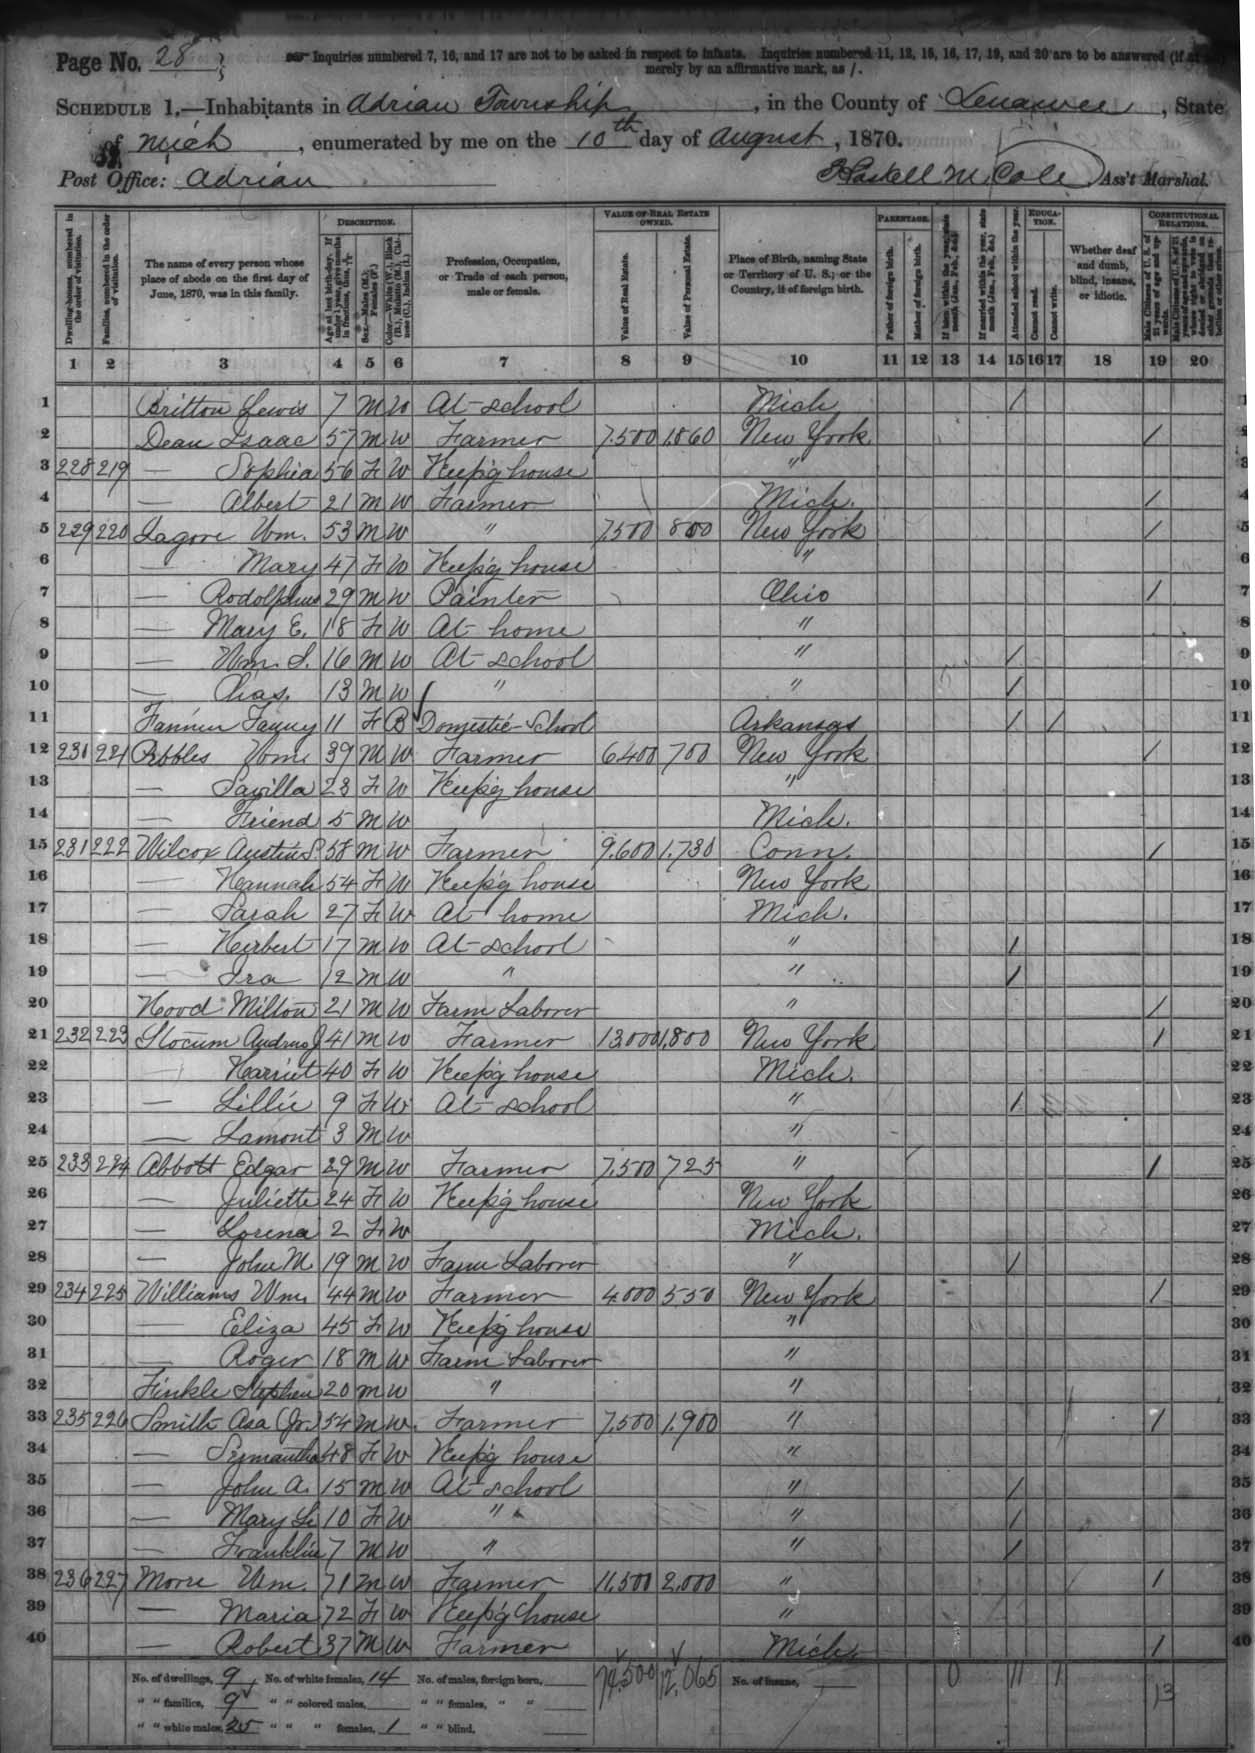 Page No. 28
Inquiries numbered 7, 16, and 17 are not to be asked in respect to infants. Inquiries numbered 11, 12, 15, 16, 17, 19, and 20 are to be answered (if at all)
merely by an affirmative mark, as /.
SCHEDULE 1.—Inhabitants in Adrian Township, in the County of Lenawee, State
of Mich, enumerated by me on the 10th day of August, 1870.
Post Office: Adrian Haskell M. Cole, Ass't Marshal.
Dwelling-houses, numbered in the order of visitation.
Families, numbered in the order of visitation.
The name of every person whose place of abode on the first day of June, 1870, was in this family.
DESCRIPTION.
Age at last birth-day. If under 1 year, give months in fractions, thus,
Sex.—Males (M.), Females (F.)
Color.—White (W.), Black (B.), Mulatto (M.), Chinese (C.), Indian (I.)
Profession, Occupation, or Trade of each person, male or female.
VALUE OF REAL ESTATE OWNED.
Value of Real Estate.
Value of Personal Estate.
Place of Birth, naming State or Territory of U. S.; or the Country, if of foreign birth.
PARENTAGE.
Father of foreign birth.
Mother of foreign birth.
If born within the year, state month (Jan., Feb., &c.)
If married within the year, state month (Jan., Feb., &c.)
Attended school within the year.
EDUCATION.
Cannot read.
Cannot write.
Whether deaf and dumb, blind, insane, or idiotic.
CONSTITUTIONAL RELATIONS.
Male Citizens of U. S. of 21 years of age and upwards.
1 2 3 4 5 6 7 8 9 10 11 12 13 14 15 16 17 18 19 20
1 Britton Lewis 7 M W At school Mich / 1
2 Dean Isaac 57 M W Farmer 7,500 1,860 New York / 2
3 228 219 — Sophia 56 F W Keep'g house " 3
4 — Albert 21 M W Farmer Mich. / 4
5 229 220 Lagore Wm. 53 M W " 7,500 800 New York / 5
6 — Mary 47 F W Keep'g house " 6
7 — Rodolphus 29 M W Painter Ohio / 7
8 — Mary E. 18 F W At home " 8
9 — Wm. S. 16 M W At school " / 9
10 — Chas. 13 M W " " / 10
11 Fanny 11 F B Domestic-School Arkansas / / 11
12 230 221 Pebbles Wm. 39 M W Farmer 6,400 700 New York / 12
13 — Savilla 23 F W Keep'g house " 13
14 — Friend 5 M W Mich. 14
15 231 222 Wilcox Austin S. 58 M W Farmer 9,600 1,730 Conn. / 15
16 — Hannah 54 F W Keep'g house New York 16
17 — Sarah 27 F W At home Mich. 17
18 — Herbert 17 M W At school " / 18
19 — Ira 12 M W " " / 19
20 Hood Milton 21 M W Farm Laborer " / 20
21 232 223 Slocum Andrus J 41 M W Farmer 13,000 1,800 New York / 21
22 — Harriet 40 F W Keep'g house Mich. 22
23 — Lillie 9 F W At school " / 23
24 — Lamont 3 M W " 24
25 233 224 Abbott Edgar 29 M W Farmer 7,500 725 " / 25
26 — Juliette 24 F W Keep'g house New York 26
27 — Lorena 2 F W Mich. 27
28 — John M. 19 M W Farm Laborer " / 28
29 234 225 Williams Wm. 44 M W Farmer 4,000 550 New York / 29
30 — Eliza 45 F W Keep'g house " 30
31 — Roger 18 M W Farm Laborer " 31
32 Finkle Stephen 20 M W " " 32
33 235 226 Smith Asa (Jr.) 54 M W Farmer 7,500 1,900 " / 33
34 — Symantha 48 F W Keep'g house " 34
35 — John A. 15 M W At school " / 35
36 — Mary 10 F W " " / 36
37 — Franklin 7 M W " " / 37
38 236 227 Moore Wm. 71 M W Farmer 11,500 2,000 " / 38
39 — Maria 72 F W Keep'g house " 39
40 — Robert 37 M W Farmer Mich. / 40
No. of dwellings, 9 No. of white females, 14 No. of males, foreign born, 74,500 12,065 No. of insane, 0 11 1 13
" " families, 9 " " colored males, " " females, " "
" " white males, 25 " " " females, 1 " " blind,